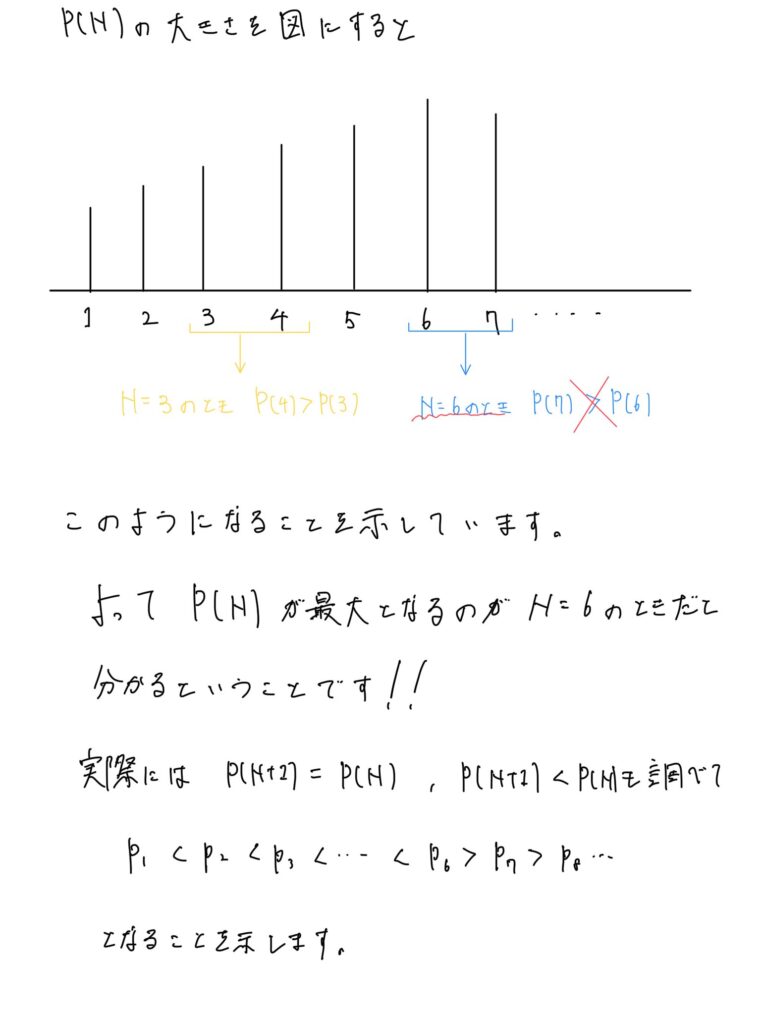 P(N)の大きさを図にすると
1 2 3 4 5 6 7 ‥‥
N=3のとき P(4)>P(3) N=6のとき P(7)>P(6)
このようになることを示しています。
よって P(N)が最大となるのが N=6のときだと
分かるということです!!
実際には P(N+1)=P(N), P(N+1)<P(N)も調べて
P₁<P₂<P₃<…<P₆>P₇>P₈…
となることを示します。